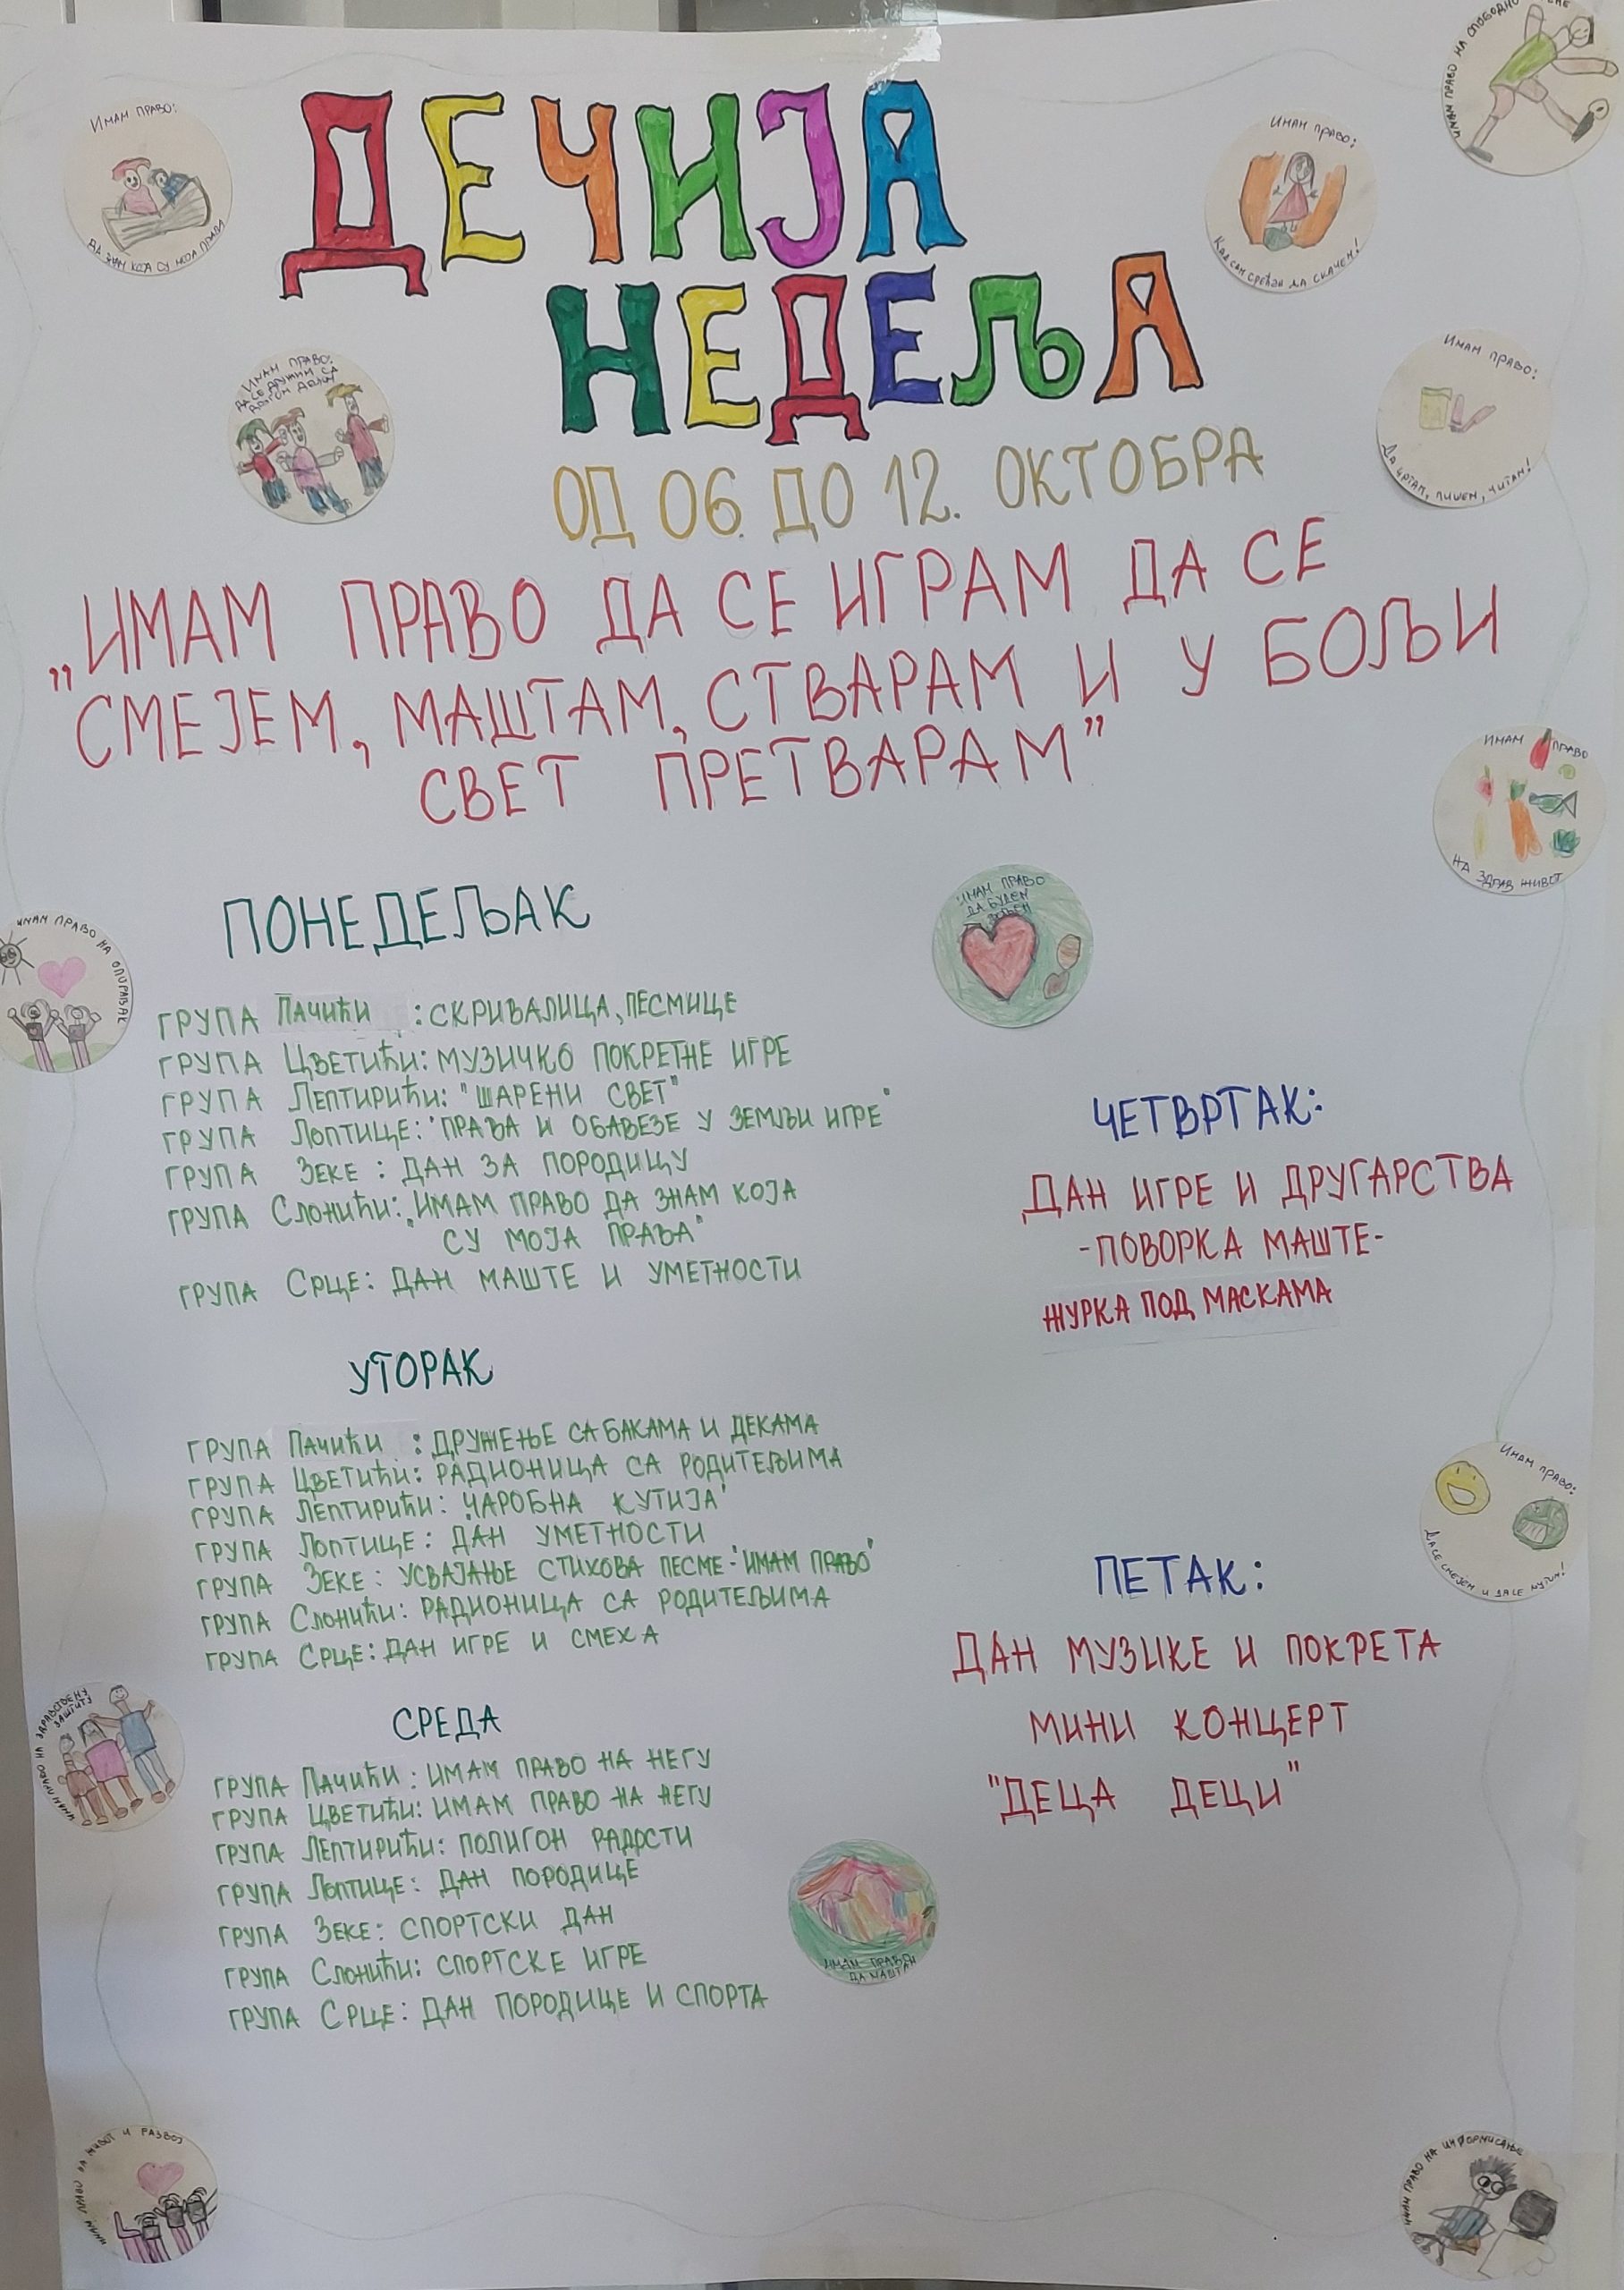 ДЕЧИЈА
НЕДЕЉА
ОД 06. ДО 12. ОКТОБРА
„ИМАМ ПРАВО ДА СЕ ИГРАМ ДА СЕ
СМЕЈЕМ, МАШТАМ, СТВАРАМ И У БОЉИ
СВЕТ ПРЕТВАРАМ”
ИМАМ ПРАВО:
ДА ЗНАМ КОЈА СУ МОЈА ПРАВА
ИМАМ ПРАВО:
ДА СЕ ДРУЖИМ СА
ДРУГОМ ДЕЦОМ
ИМАМ ПРАВО НА СЛОБОДНО
ИМАМ ПРАВО:
КАД САМ СРЕЋАН ДА СКАЧЕМ!
ИМАМ ПРАВО:
ДА ЦРТАМ, ПИШЕМ, ЧИТАМ!
ИМАМ ПРАВО
НА ЗДРАВ ЖИВОТ
ИМАМ ПРАВО
ДА БУДЕМ
ВОЉЕН
ИМАМ ПРАВО НА ОПОРАВАК
ПОНЕДЕЉАК
ГРУПА ПАЧИЋИ : СКРИВАЛИЦА, ПЕСМИЦЕ
ГРУПА ЦВЕТИЋИ: МУЗИЧКО ПОКРЕТНЕ ИГРЕ
ГРУПА ЛЕПТИРИЋИ: "ШАРЕНИ СВЕТ"
ГРУПА ЛОПТИЦЕ: "ПРАВА И ОБАВЕЗЕ У ЗЕМЉИ ИГРЕ"
ГРУПА ЗЕКЕ : ДАН ЗА ПОРОДИЦУ
ГРУПА СЛОНИЋИ: "ИМАМ ПРАВО ДА ЗНАМ КОЈА
СУ МОЈА ПРАВА"
ГРУПА СРЦЕ: ДАН МАШТЕ И УМЕТНОСТИ
УТОРАК
ГРУПА ПАЧИЋИ : ДРУЖЕЊЕ СА БАКАМА И ДЕКАМА
ГРУПА ЦВЕТИЋИ: РАДИОНИЦА СА РОДИТЕЉИМА
ГРУПА ЛЕПТИРИЋИ: "ЧАРОБНА КУТИЈА"
ГРУПА ЛОПТИЦЕ: ДАН УМЕТНОСТИ
ГРУПА ЗЕКЕ: УСВАЈАЊЕ СТИХОВА ПЕСМЕ-"ИМАМ ПРАВО"
ГРУПА СЛОНИЋИ: РАДИОНИЦА СА РОДИТЕЉИМА
ГРУПА СРЦЕ: ДАН ИГРЕ И СМЕХА
СРЕДА
ГРУПА ПАЧИЋИ: ИМАМ ПРАВО НА НЕГУ
ГРУПА ЦВЕТИЋИ: ИМАМ ПРАВО НА НЕГУ
ГРУПА ЛЕПТИРИЋИ: ПОЛИГОН РАДОСТИ
ГРУПА ЛОПТИЦЕ: ДАН ПОРОДИЦЕ
ГРУПА ЗЕКЕ: СПОРТСКИ ДАН
ГРУПА СЛОНИЋИ: СПОРТСКЕ ИГРЕ
ГРУПА СРЦЕ: ДАН ПОРОДИЦЕ И СПОРТА
ЧЕТВРТАК:
ДАН ИГРЕ И ДРУГАРСТВА
-ПОВОРКА МАШТЕ-
ЖУРКА ПОД МАСКАМА
ПЕТАК:
ДАН МУЗИКЕ И ПОКРЕТА
МИНИ КОНЦЕРТ
"ДЕЦА ДЕЦИ"
ИМАМ ПРАВО:
ДА СЕ СМЕЈЕМ И ДА СЕ ЉУТИМ!
ИМАМ ПРАВО НА ЗДРАВСТВЕНУ
ЗАШТИТУ
ИМАМ ПРАВО
ДА МАШТАМ
ИМАМ ПРАВО НА ЖИВОТ И РАЗВОЈ
ИМАМ ПРАВО НА ИНФОРМИСАЊЕ